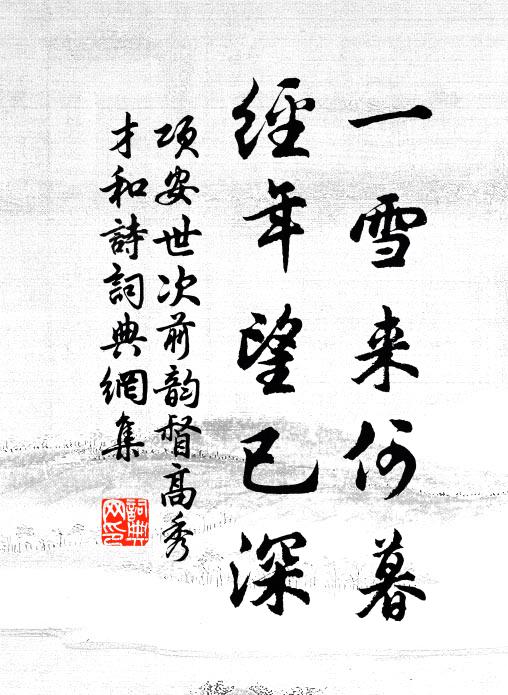 一雪来何暮
經年望已深
項安世次前韵督高秀
才和詩詞典網集
詞典网印